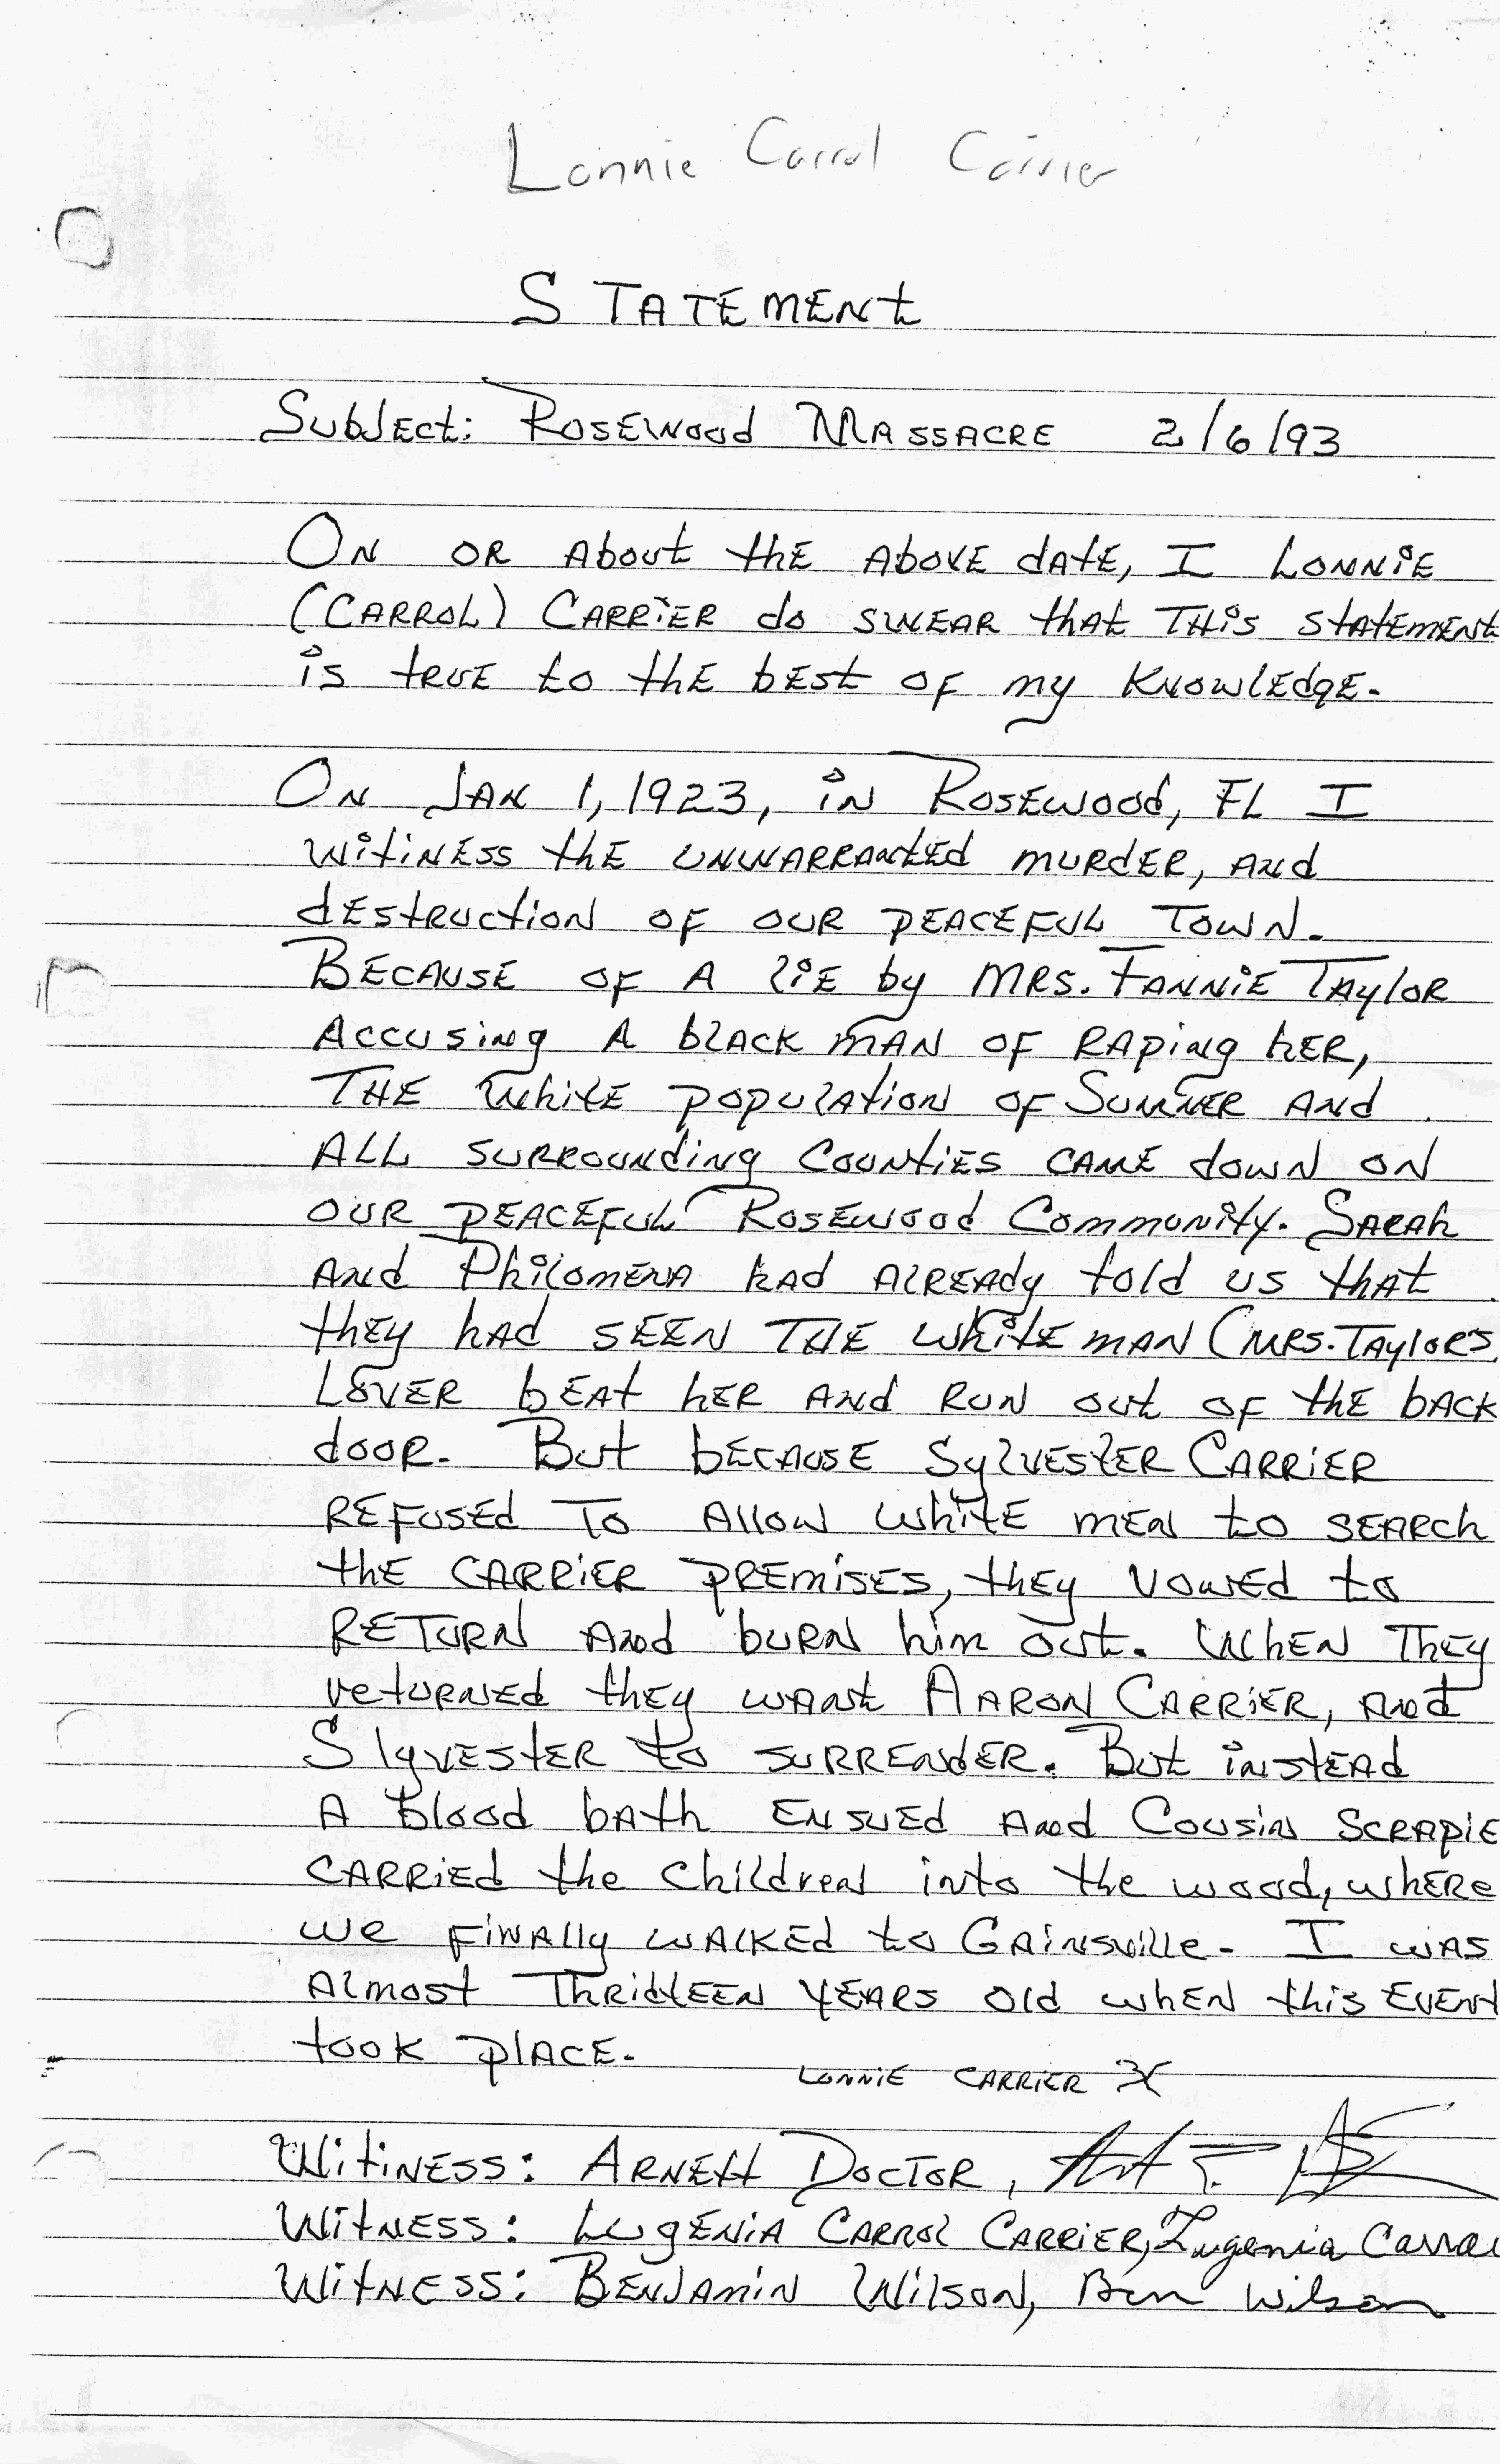 Lonnie Carrol Carrier
STATEMENT
Subject: Rosewood Massacre 2/6/93
On or about the above date, I Lonnie
(Carrol) Carrier do swear that this statement
is true to the best of my knowledge.
On Jan 1, 1923, in Rosewood, FL I
witiness the unwarranted murder, and
destruction of our peaceful town.
Because of a lie by Mrs. Fannie Taylor
accusing a black man of raping her,
the white population of Sumner and
all surrounding counties came down on
our peaceful Rosewood Community. Sarah
and Philomena had already told us that
they had seen the white man (Mrs. Taylors
Lover beat her and run out of the back
door. But because Sylvester Carrier
refused to allow white men to search
the Carrier premises, they vowed to
return and burn him out. When they
returned they want Aaron Carrier, and
Slyvester to surrender. But instead
a blood bath ensued and Cousin Scrapie
carried the children into the wood, where
we finally walked to Gainsville. I was
almost Thridteen years old when this event
took place.
Lonnie Carrier X
Witiness: Arnett Doctor,
Witness: Lugenia Carrol Carrier, Lugenia Carrai
Witness: Benjamin Wilson, Ben Wilson